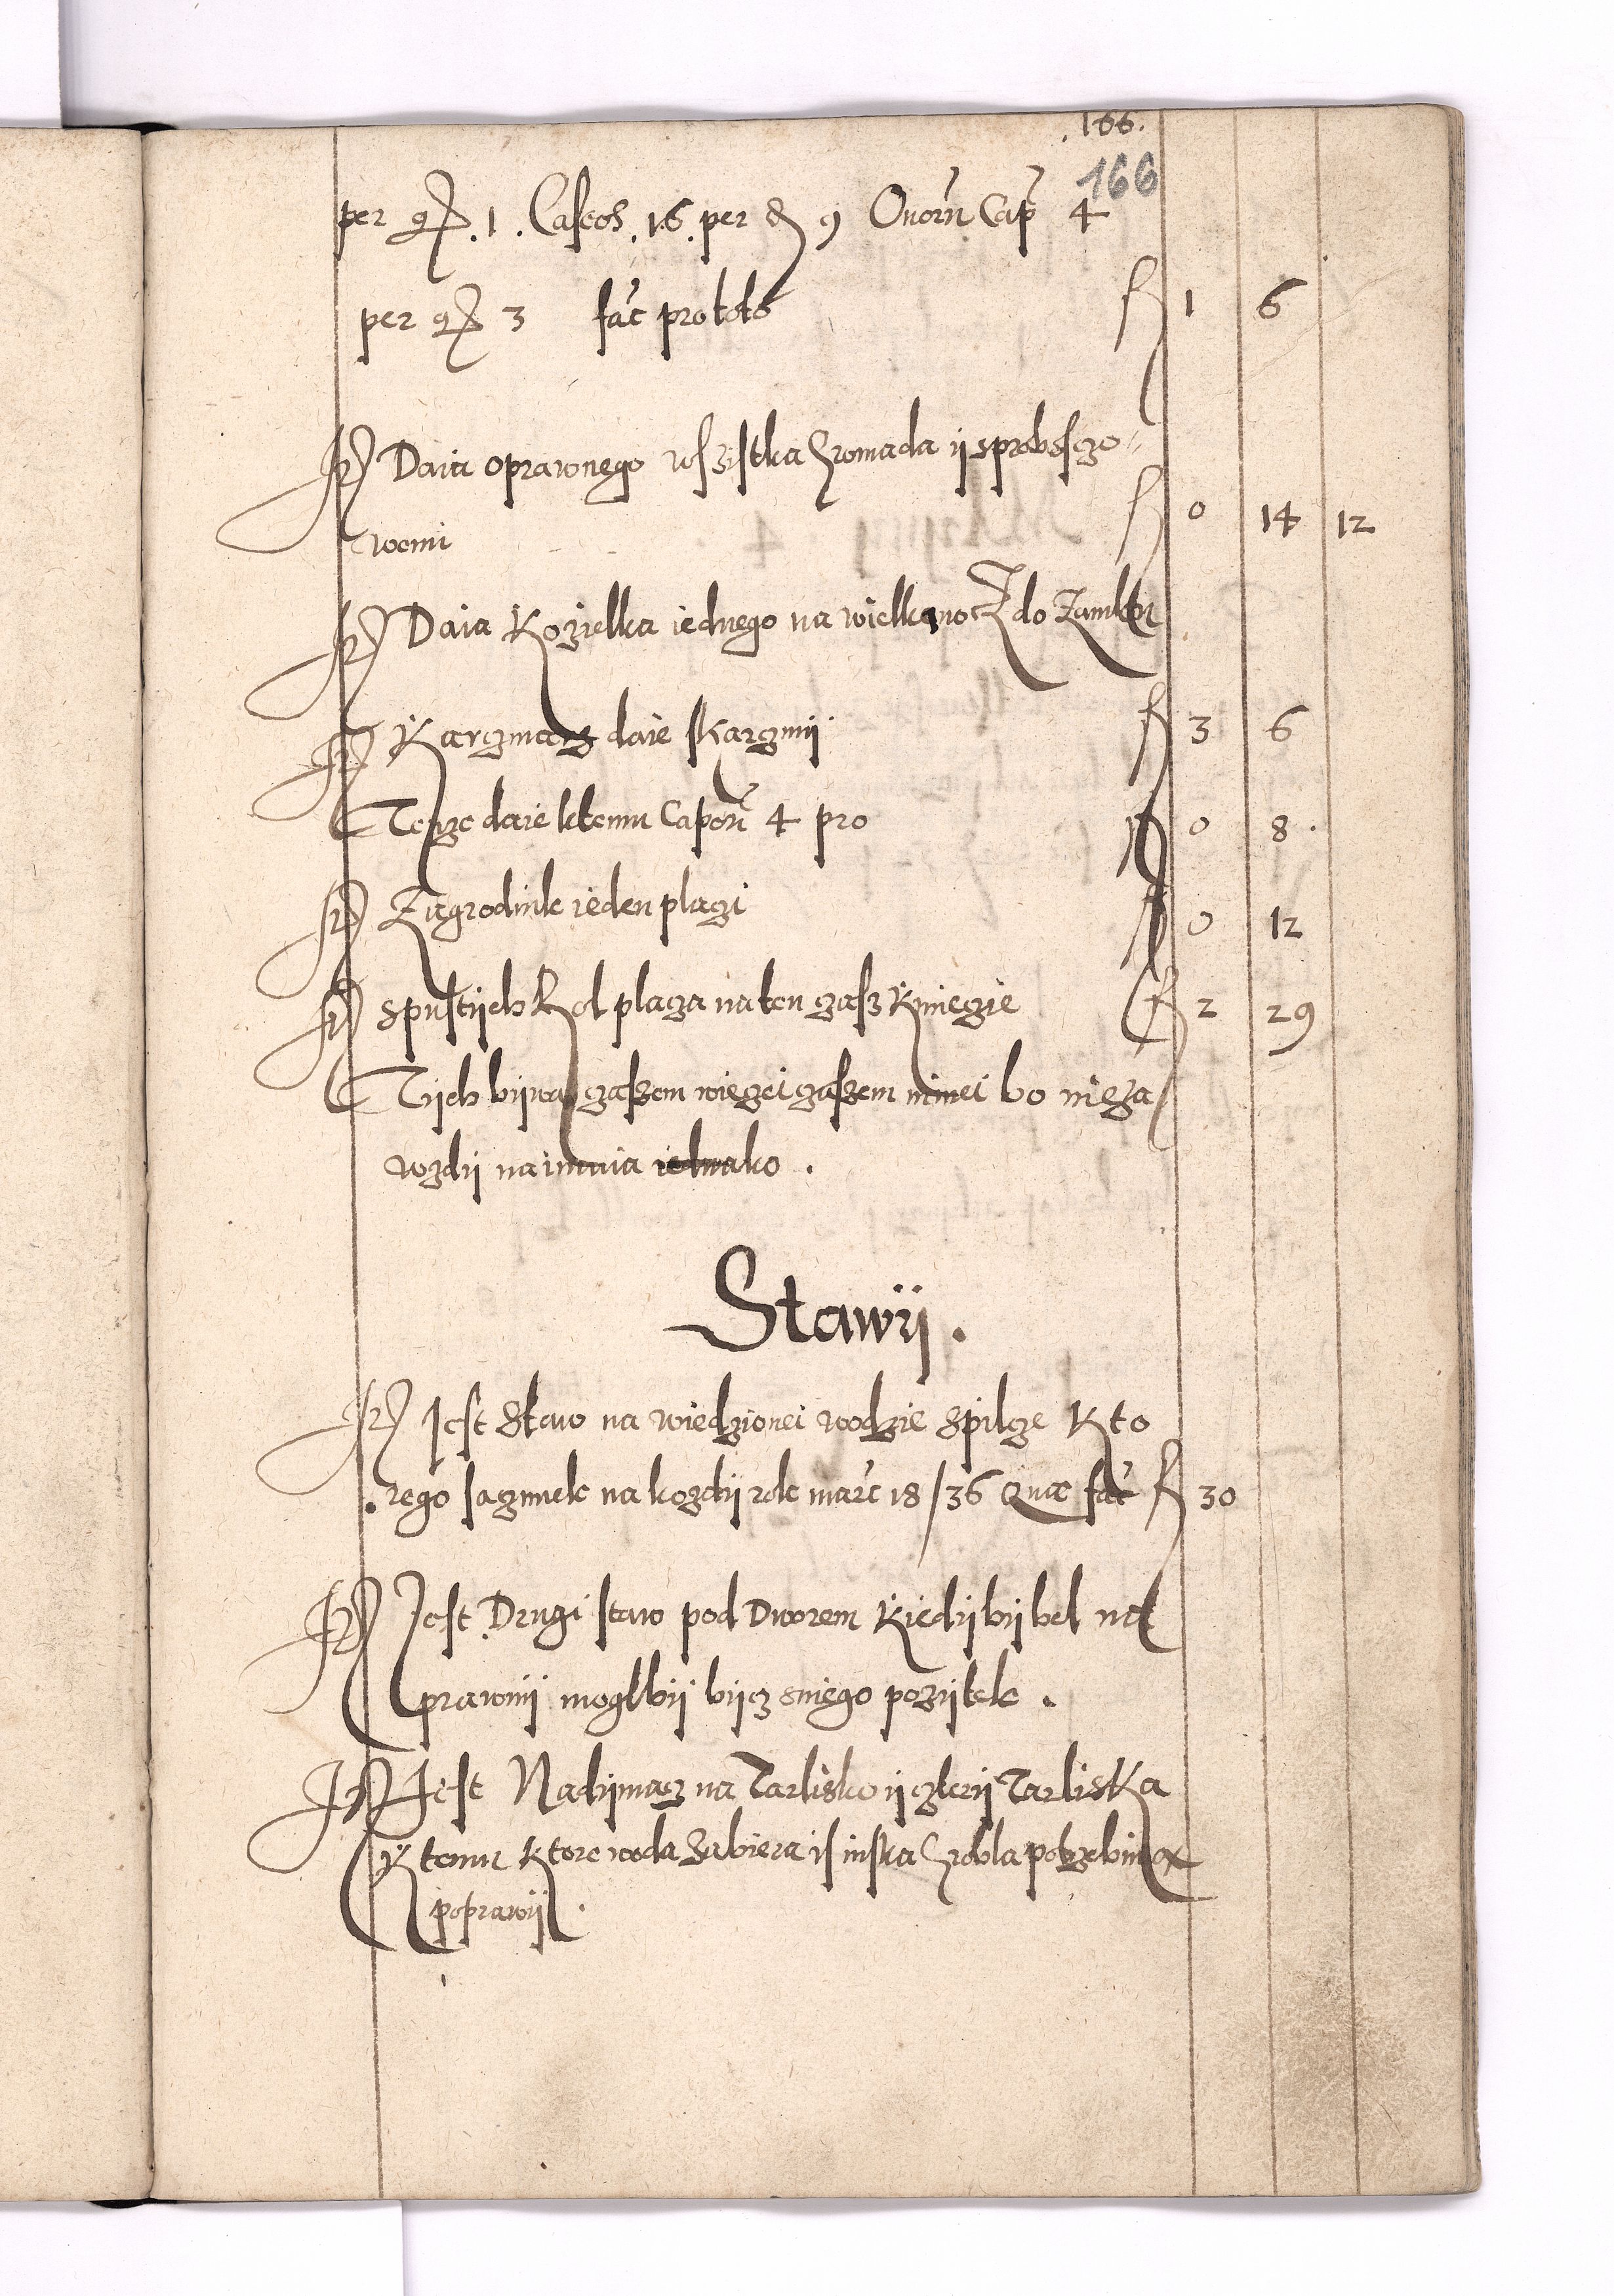 .166.
166
per gr .1. Caseos .16. per d 9 Ouorū Cap 4
per gr 3 fac̄ pro toto fl 1 6
It Daia oprawnego wszistka hromada ij sprobosczo
wemi fl 0 14 12
It Daia Kozielka iednego na wielkanocz do Zamku
It Karczmarz daie skarczmij fl 3 6
Tenze daie ktemu Caponū 4 pro fl 0 8.
It Zagrodnik ieden placzi fl 0 12
It spustijch Rol placza na ten czasz Kmiecie fl 2 29
Tijch bijwa czaszem wieczei czaszem mniei bo nieza
wzdij naimuia iednako.
Stawij.
It Jest Staw na wiedzionei wodzie Spilcze Kto
rego saczunek na kozdij rok marc̄ 18/36 Quæ fac̄ fl 30
It Jest Drugi staw pod Dworem Kiedij bij bel na
prawnij moglbij bijcz sniego pozijtek.
It Jest Nadijmacz na Tarlisko ij czterij Tarliska
K temu Ktore woda zabiera is niska hrobla potrzebuia
poprawij.